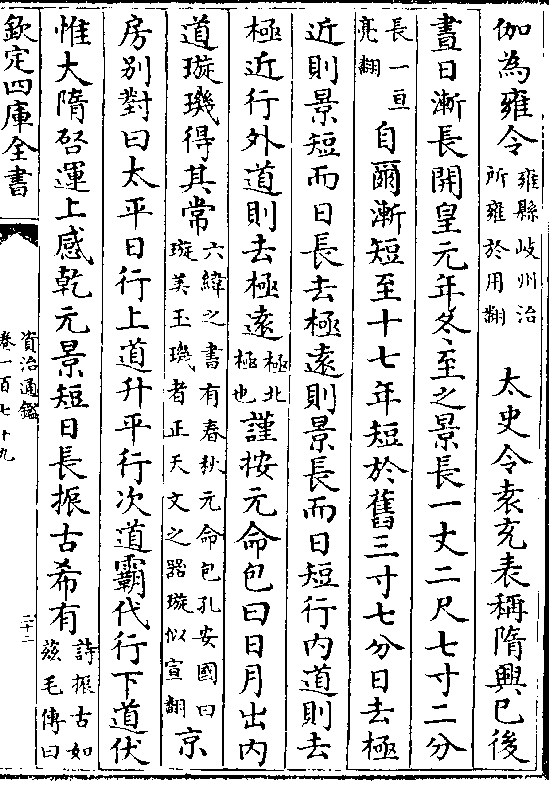 伽為雍令雍縣岐州治所雍於用翻　太史令袁充表稱隋興已後
晝日漸長開皇元年冬至之景長一丈二尺七寸二分
長一亘亮翻自爾漸短至十七年短於舊三寸七分日去極
近則景短而日長去極遠則景長而日短行内道則去
極近行外道則去極遠極北極也謹按元命包曰日月出内
道璇璣得其常六緯之書有春秋元命包孔安國曰璇美玉璣者正天文之器璇似宣翻京
房别對曰太平日行上道升平行次道霸代行下道伏
惟大隋啓運上感乾元景短日長振古希有詩振古如兹毛傳曰
欽定四庫全書
資治通鑑
卷一百七十九
二十二